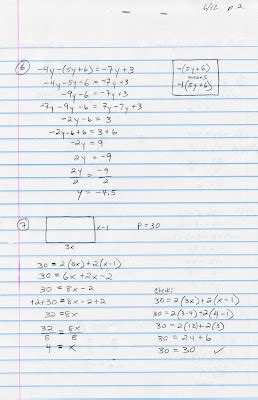 6/12 p. 2
⑥ -4y-(5y+6)=-7y+3
-4y-5y-6=-7y+3
-9y-6=-7y+3
+7y-9y-6=7y-7y+3
-2y-6=3
-2y-6+6=3+6
-2y=9
2y=-9
2y/2 = -9/2
y=-4.5
-(5y+6)
means
-1(5y+6)
⑦ x-1 P=30
3x
30=2(3x)+2(x-1)
30=6x+2x-2
30=8x-2
+2+30=8x-2+2
32=8x
32/8 = 8x/8
4=x
check:
30=2(3x)+2(x-1)
30=2(3·4)+2(4-1)
30=2(12)+2(3)
30=24+6
30=30 ✓